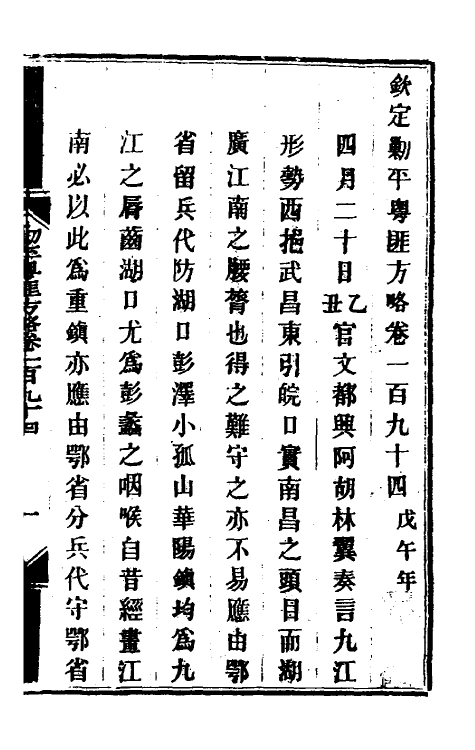 欽定勦平粵匪方略卷一百九十四 戊午年
四月二十日乙丑官文都興阿胡林翼奏言九江
形勢西挹武昌東引皖口實南昌之頭目而湖
廣江南之腰膂也得之難守之亦不易應由鄂
省留兵代防湖口彭澤小孤山華陽鎮均為九
江之脣齒湖口尤為彭蠡之咽喉自昔經畫江
南必以此為重鎮亦應由鄂省分兵代守鄂省
方略卷一百九十四 一